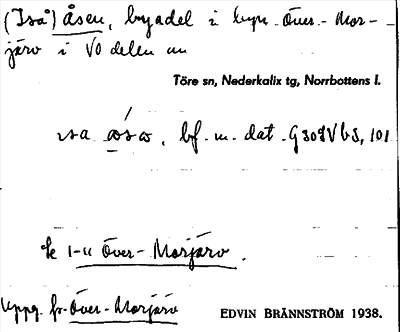 (Iså) åsen, byadel i byn Över-Mor-
järv i VO delen av
Töre sn, Nederkalix tg, Norrbottens l.
bf. m. dat.
Över-Morjärv.
Uppg. fr. Över-Morjärv
EDVIN BRÄNNSTRÖM 1938.